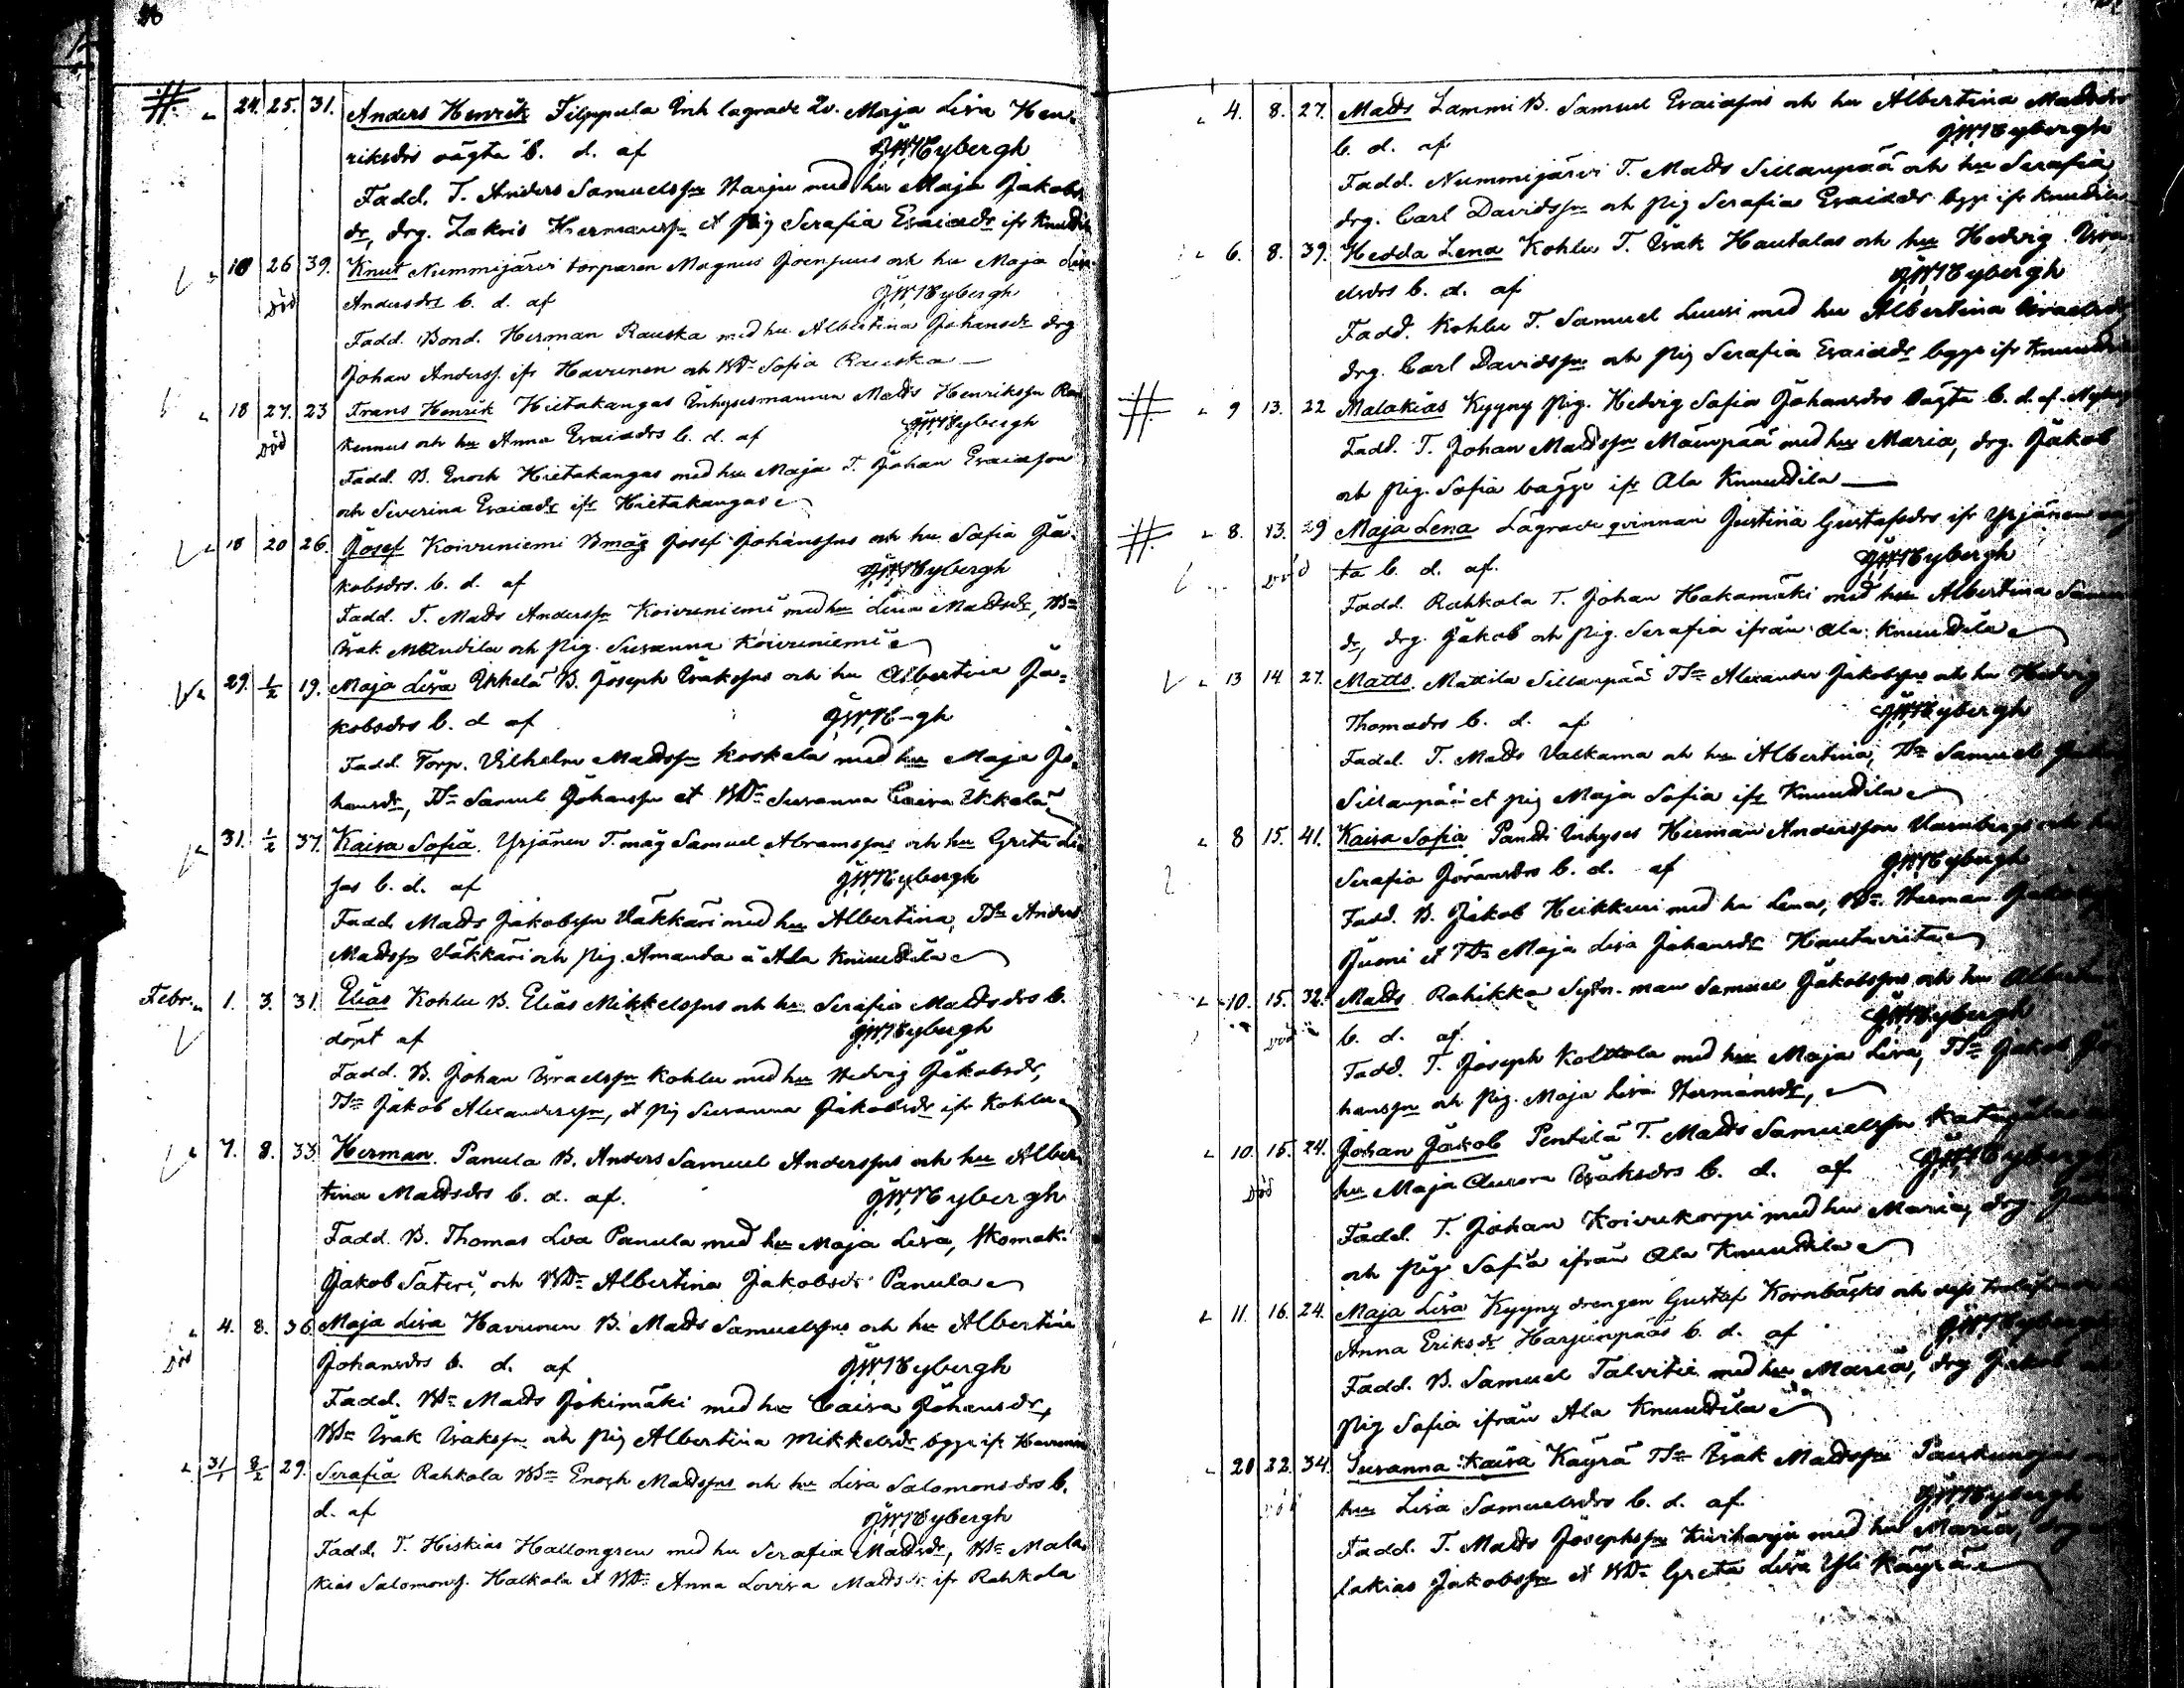 26
24. 25. 31. Anders Henrik Filppula Enk lagrade Ev. Maja Lisa Hen-
riksdrs oägta b. d. af G.W.Nybergh
Fadd. T. Anders Samuelssn Harju med hu Maja Jakobs
dr, drg. Zakris Hermanssn et pig Serafia Esaiadr ifr Knuutila
18 26 39. Knut Nummijärvi torparen Magnus Joensuus och hu Maja
död Andersdrs b. d. af G.W.Nybergh
Fadd. Bond. Herman Rauska med hu Albertina Johansdr drg
Johan Anderss. ifr Havunen och BDr Sofia Rauska
18 27. 23 Frans Henrik Hietakangas Inhysesmannen Matts Henrikssn
död kennus och hu Anna Esaiadrs b. d. af G.W.Nybergh
Fadd. B. Enoch Hietakangas med hu Maja T. Johan Esaiasson
och Severina Esaiadr ifr Hietakangas
18 20 26. Josef Koivuniemi Bmåg Josef Johanssns och hu Sofia Ja-
kobsdrs. b. d. af G.W.Nybergh
Fadd. T. Matts Anderssn Koivuniemi med hu Lena Mattsdr, BSn
Isak Mandila och pig. Susanna Koivuniemi
29. 1/2 19. Maja Lisa Ikkelä B. Joseph Isakssns och hu Albertina Ja-
kobsdrs b. d af G.W.N-gh
Fadd. Torp. Vilhelm Mattssn Koskela med hu Maja Jo-
hansdr, TSn Samuel Johanssn et BDr Susanna Caisa Ikkelä
31. 1/2 37. Kaisa Sofia. Yrjänen T.måg Samuel Abramssns och hu Greta Li-
sas b. d. af G.W.Nybergh
Fadd Matts Jakobssn Väkkäri med hu Albertina, TSn Anders
Mattssn Väkkäri och pig. Amanda å Ala Knuutila
Febr. 1. 3. 31. Elias Kohlu B. Elias Mikkelssns och hu Serafia Mattsdrs b.
döpt af G.W.Nybergh
Fadd. B. Johan Israelssn Kohlu med hu Hedvig Jakobsdr,
TSn Jakob Alexanderssn, et pig Susanna Jakobsdr ifr Kohlu
7. 8. 33 Herman. Panula B. Anders Samuel Anderssns och hu Alber-
tina Mattsdrs b. d. af. G.W.Nybergh
Fadd. B. Thomas Lva Panula med hu Maja Lisa, Skomak.
Jakob Säteri, och BDr Albertina Jakobsdr Panula
4. 8. 36. Maja Lisa Havunen B. Matts Samuelssns och hu Albertina
död Johansdrs b. d. af G.W.Nybergh
Fadd. BSn Matts Jokimäki med hu Caisa Johansdr,
BSn Isak Isakssn och pig Albertina Mikkelsdr bgge ifr Havunen
31/1 8/2 29. Serafia Rahkola BSn Enoch Mattssns och hu Lisa Salomonsdrs b.
d. af G.W.Nybergh
Fadd. T. Hiskias Hallongren med hu Serafia Mattsdr, BSn Mala-
kias Salomonss. Halkola et BDr Anna Lovisa Mattsdr ifr Rahkola
4. 8. 27. Matts Lammi B. Samuel Esaiassns och hu Albertina Mattsdrs
b. d. af G.W.Nybergh
Fadd. Nummijärvi T. Matts Sillanpää och hu Serafia,
drg. Carl Davidssn och pig Serafia Esaiadr bgge ifr Knuutila
6. 8. 39. Hedda Lena Kohlu T. Isak Hautalas och hu Hedvig Isra-
elsdrs b. d. af G.W.Nybergh
Fadd. Kohlu T. Samuel Luusi med hu Albertina Israelsdr
drg. Carl Davidssn och pig Serafia Esaiadr bgge ifr Knuutila
9 13. 22 Malakias Kyyny pig. Hedvig Sofia Johansdrs oägta b. d. af. Nybergh
Fadd. T. Johan Mattssn Mäenpää med hu Maria, drg. Jakob
och pig. Sofia bägge ifr Ala Knuutila
8. 13. 29 Maja Lena Lägrade qvinnan Justina Gustafsdrs ifr Yrjänen oäg-
död ta b. d. af. G.W.Nybergh
Fadd. Rahkola T. Johan Hakamäki med hu Albertina
dr, drg. Jakob och pig. Serafia ifrån Ala Knuutila
13 14 27. Matts. Mattila Sillanpää TSn Alexander Jakobssns och hu Hedvig
Thomasdrs b. d. af G.W.Nybergh
Fadd. T. Matts Valkama och hu Albertina, TSn Samuel
Sillanpää et pig Maja Sofia ifr Knuutila
8 15. 41. Kaisa Sofia Pantti Inhyses Herman Andersson Varnbergs och hu
Serafia Jöransdrs b. d. af G.W.Nybergh
Fadd. B. Jakob Heikkuri med hu Lena, BSn Herman
Juoni et TDr Maja Lisa Johansdr Knuutila
10. 15. 32. Matts Rahikka Sytn. man Samuel Jakobssns och hu Albertina
död b. d. af. G.W.Nybergh
Fadd. T. Joseph Koltola med hu Maja Lisa, TSn Jakob Jo-
hanssn och pig. Maja Lisa Hermansdr,
10. 15. 24. Johan Jakob Pentilä T. Matts Samuelssn
död hu Maja Aurora Isaksdrs b. d. af G.W.Nybergh
Fadd. T. Johan Koivukorpi med hu Maria, drg
och pig Sofia ifrån Ala Knuutila
11. 16. 24. Maja Lisa Kyyny drengen Gustaf Kornbäcks och dess trolofvade
Anna Eriksdr Harjunpääs b. d. af G.W.Nybergh
Fadd. B. Samuel Talvitie med hu Maria, drg Jakob
pig Sofia ifrån Ala Knuutila
20 22. 34. Susanna Kaisa Käyrä TSn Isak Mattssn
hu Lisa Samuelsdrs b. d. af G.W.Nybergh
Fadd. T. Matts Josephssn Kiviharju med hu Maria, drg
lakias Jakobssn et BDr Greta Lisa Yli Käyrä